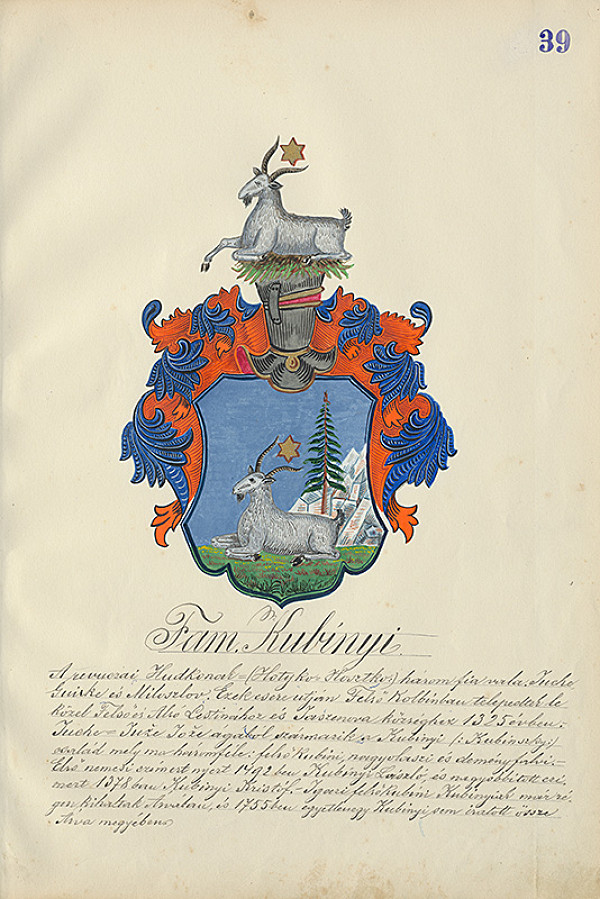 39
Fam. Kubínyi
A revucai Hudkonak = (Hotyko = Hosztko) három fia vala. Jucho
és Miloszlov. Ezek csere utján Felső Kolbinban telepedtek le
közel Felső és Alsó Lestinahoz és Jaszenova községhez 1325 évben;
Jucho = Juże Joże agából származik a Kubinyi (: Kubinszky:)
család mely ma háromféle: felső kubini, nagyolaszi és deményfalvi. –
Első nemesi czímert nyert 1492 ben Kubinyi László, és nagyobbitott czi,
mert 1578 ban Kubinyi Kristóf. – Igazi felső kubini Kubinyiak már ré,
gen kihaltak Árvában, és 1755 ben egyetlenegy Kubinyi sem iratott össze
Árva megyében